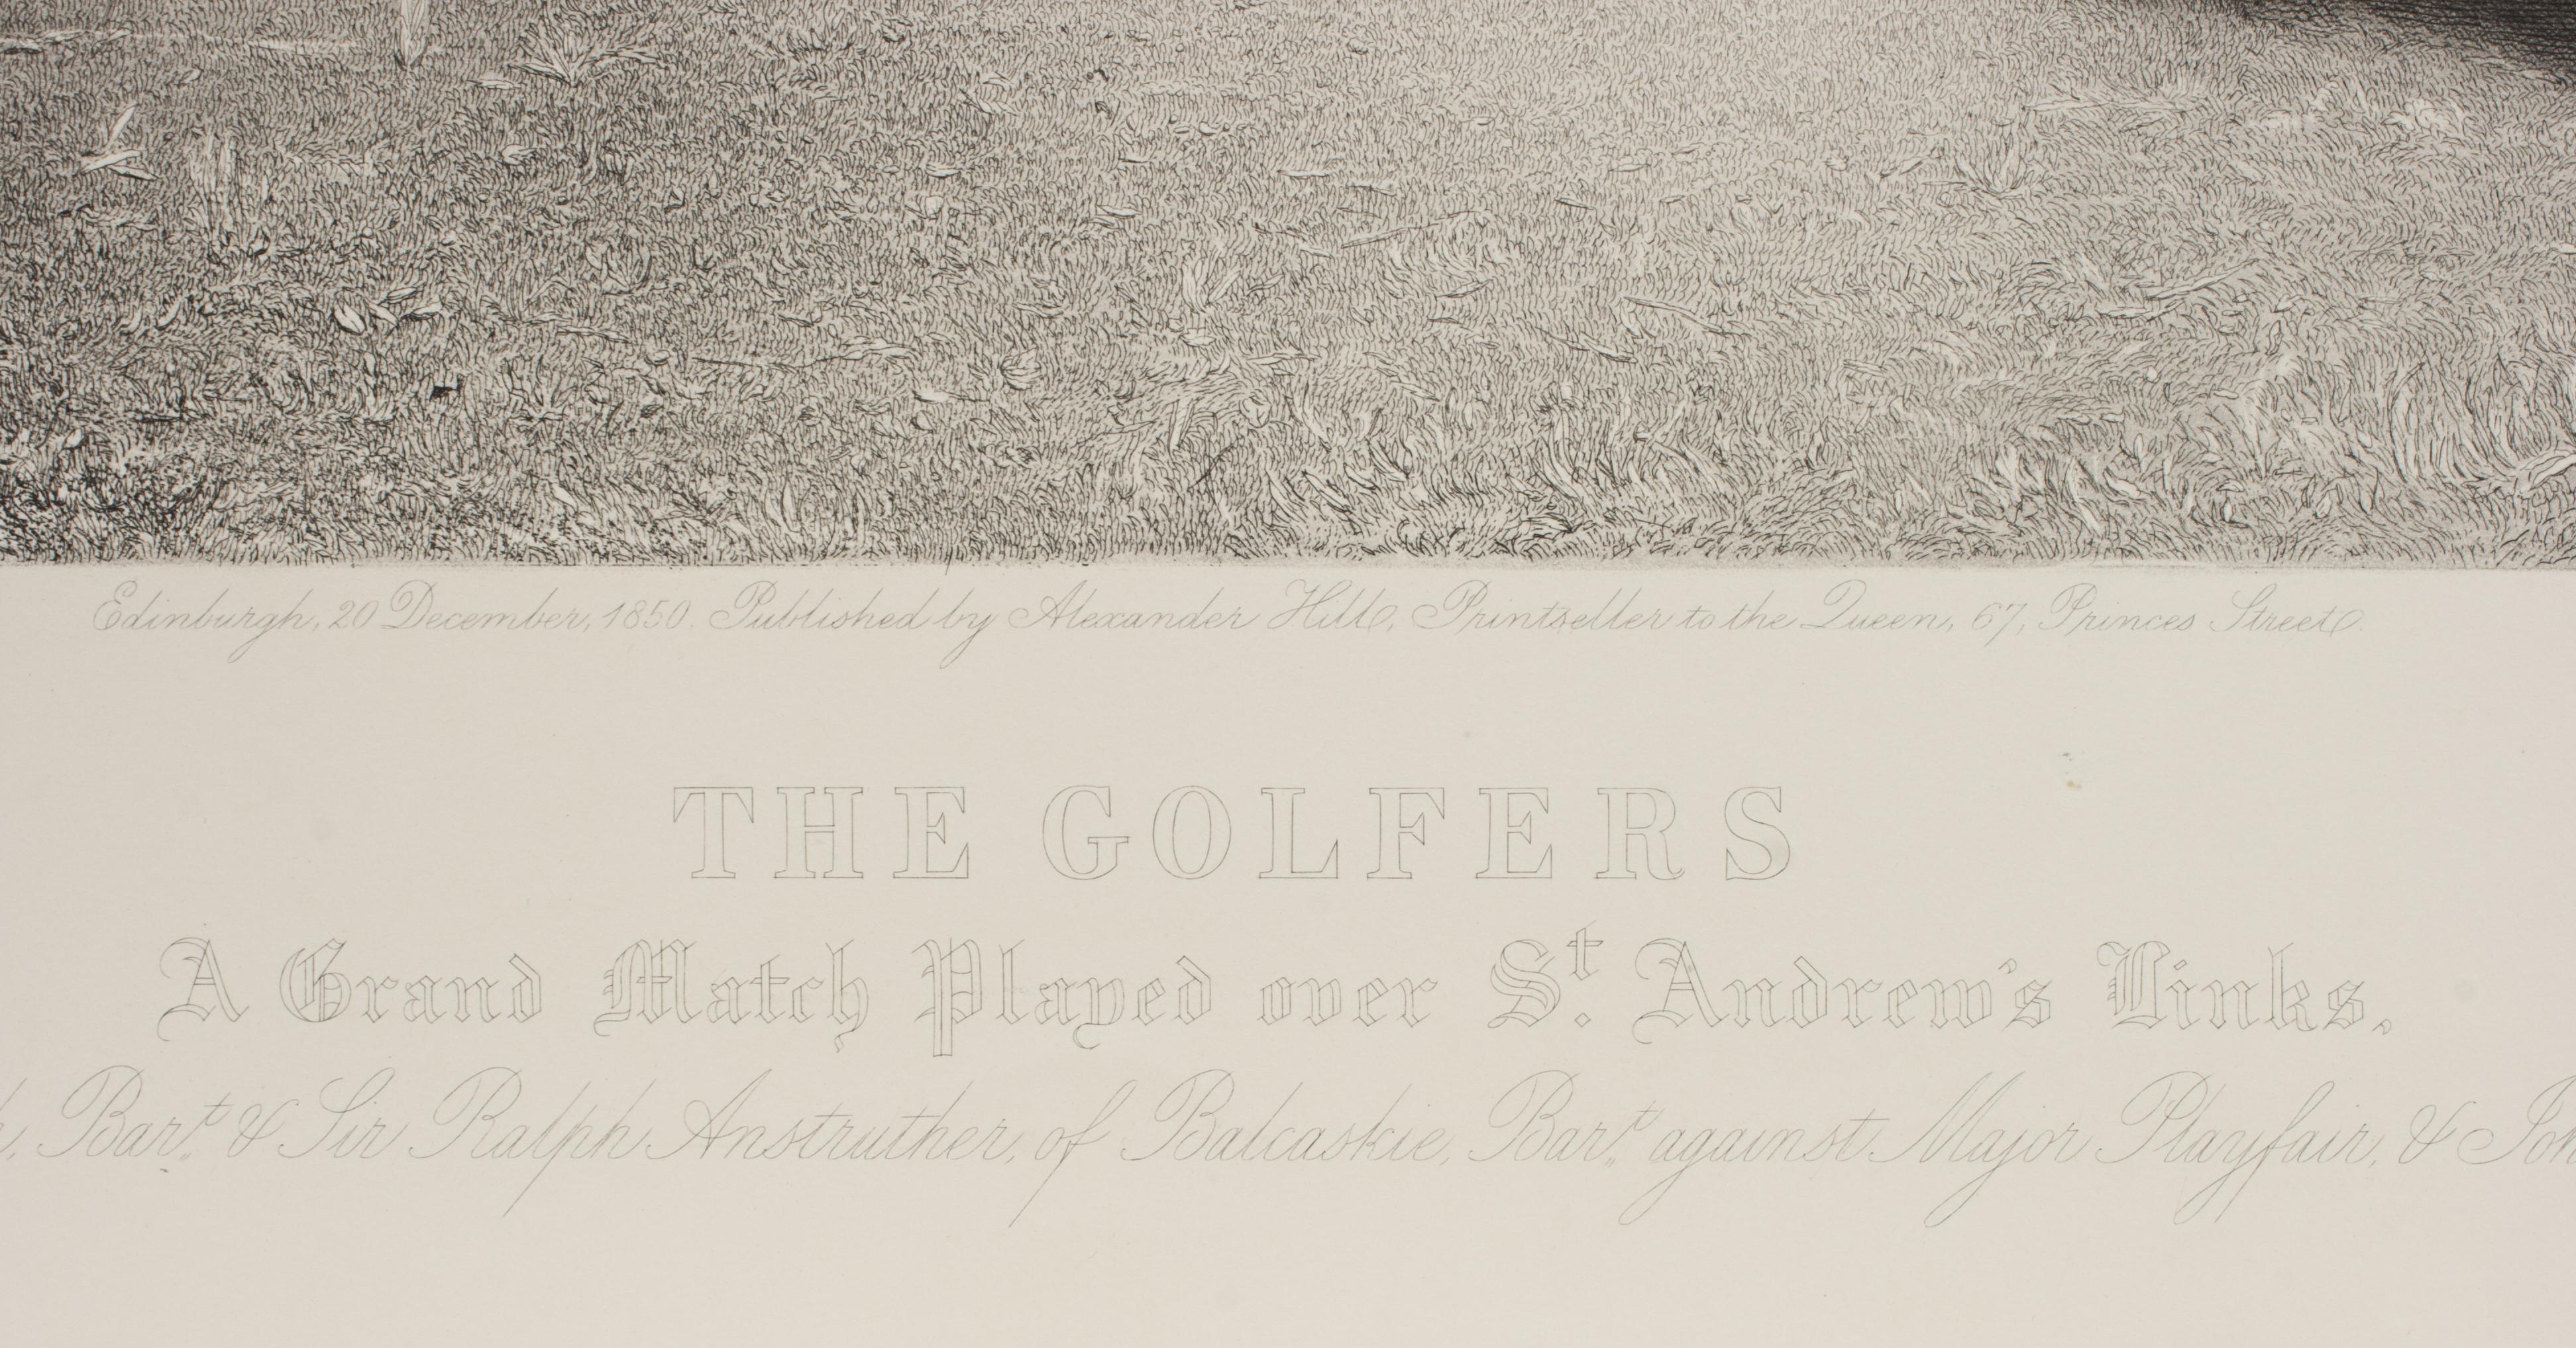 Edinburgh, 20 December, 1850. Published by Alexander Hill, Printseller to the Queen, 67, Princes Street.
THE GOLFERS
A Grand Match Played over St. Andrew's Links.
Bart. & Sir Ralph Anstruther, of Balcaskie, Bart. against Major Playfair, &